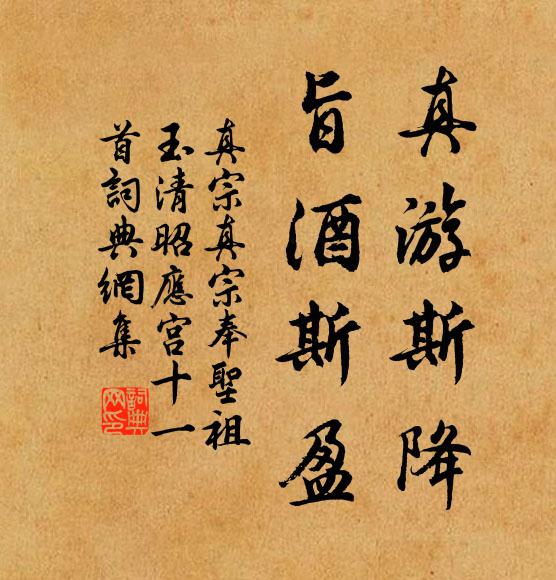 真游斯降
旨酒斯盈
真宗真宗奉聖祖
玉清昭應宮十一
首詞典網集
詞典
网印